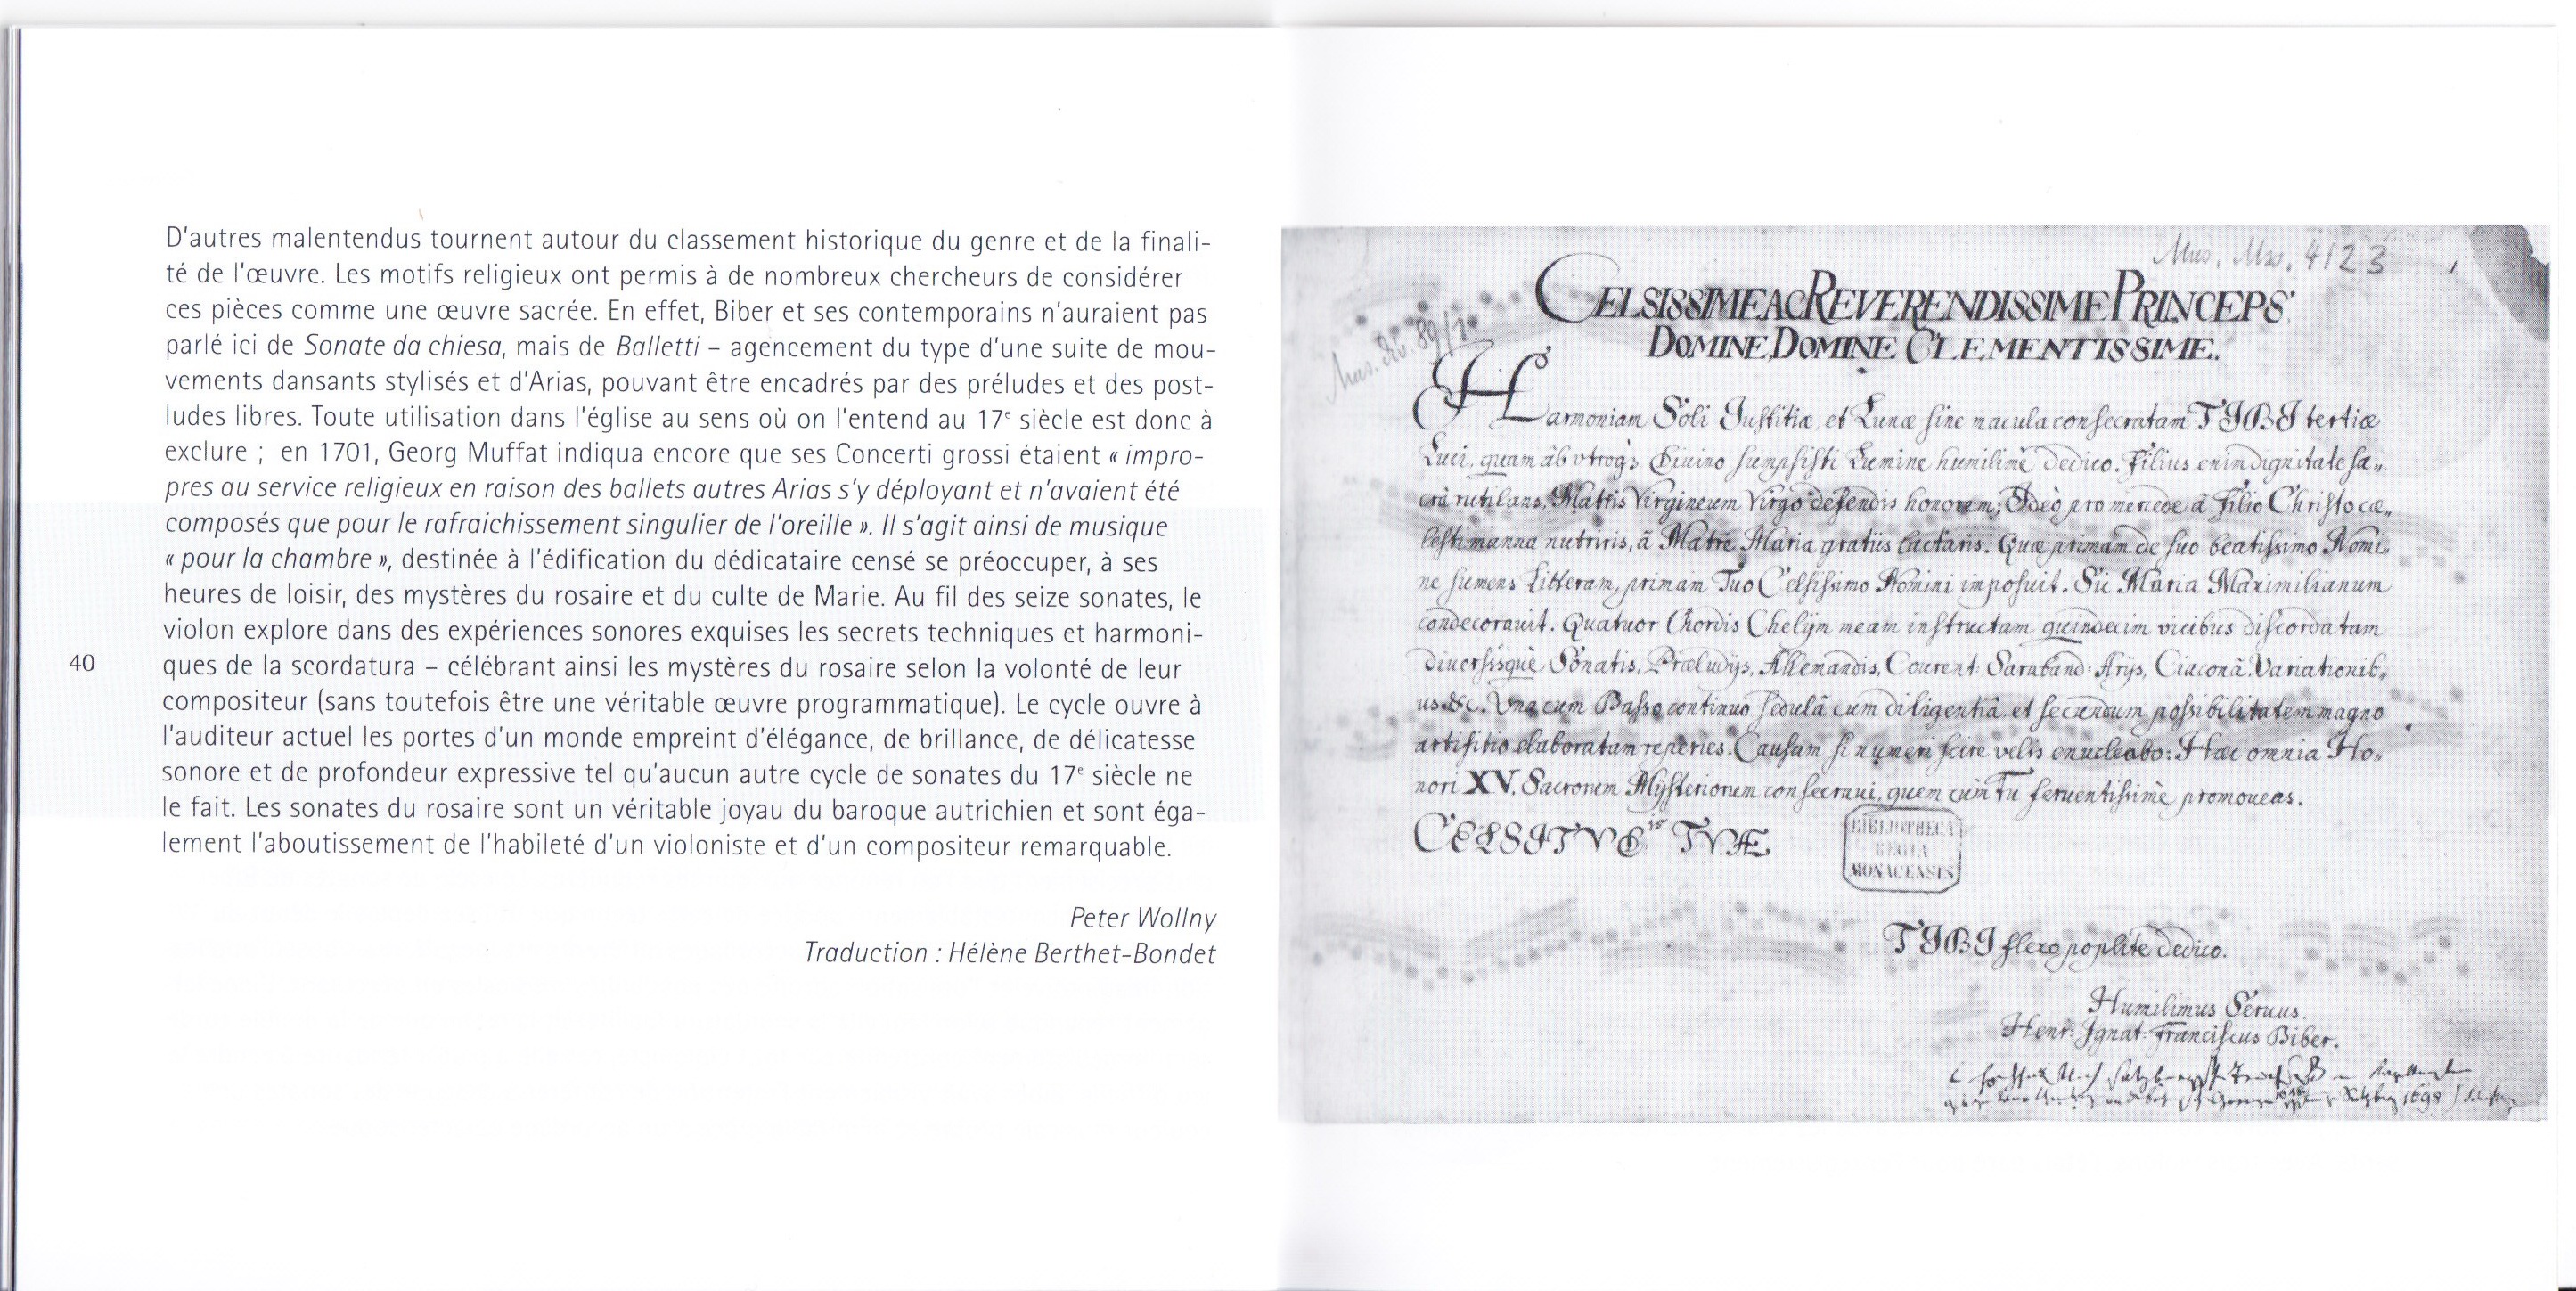 D'autres malentendus tournent autour du classement historique du genre et de la finali-
té de l'œuvre. Les motifs religieux ont permis à de nombreux chercheurs de considérer
ces pièces comme une œuvre sacrée. En effet, Biber et ses contemporains n'auraient pas
parlé ici de Sonate da chiesa, mais de Balletti – agencement du type d'une suite de mou-
vements dansants stylisés et d'Arias, pouvant être encadrés par des préludes et des post-
ludes libres. Toute utilisation dans l'église au sens où on l'entend au 17e siècle est donc à
exclure ; en 1701, Georg Muffat indiqua encore que ses Concerti grossi étaient « impro-
pres au service religieux en raison des ballets autres Arias s'y déployant et n'avaient été
composés que pour le rafraichissement singulier de l'oreille ». Il s'agit ainsi de musique
« pour la chambre », destinée à l'édification du dédicataire censé se préoccuper, à ses
heures de loisir, des mystères du rosaire et du culte de Marie. Au fil des seize sonates, le
violon explore dans des expériences sonores exquises les secrets techniques et harmoni-
ques de la scordatura – célébrant ainsi les mystères du rosaire selon la volonté de leur
compositeur (sans toutefois être une véritable œuvre programmatique). Le cycle ouvre à
l'auditeur actuel les portes d'un monde empreint d'élégance, de brillance, de délicatesse
sonore et de profondeur expressive tel qu'aucun autre cycle de sonates du 17e siècle ne
le fait. Les sonates du rosaire sont un véritable joyau du baroque autrichien et sont éga-
lement l'aboutissement de l'habileté d'un violoniste et d'un compositeur remarquable.
Peter Wollny
Traduction : Hélène Berthet-Bondet
40
Mus. Mss. 4123
CELSISSIME AC REVERENDISSIME PRINCEPS
DOMINE, DOMINE CLEMENTISSIME.
Harmoniam Soli Justitiæ, et Lunæ sine macula consecratam TIBI tertiæ
Luci, quam ab utroq; Divino sumpsisti Lumine humilimè dedico. Filius enim dignitate sa„
crâ rutilans, Matris Virgineum Virgo defendis honorem; Ideò pro mercede â Filio Christo cæ„
lesti manna nutriris, â Matre Maria gratiis lactaris. Quæ primam de suo beatissimo Nomi„
ne sumens Litteram, primam Tuo Celsissimo Nomini imposuit. Sic Maria Maximilianum
condecoravit. Quatuor Chordis Chelijm meam instructam quindecim vicibus discordatam
diversisquè Sonatis, Præludijs, Allemandis, Courent: Saraband: Arijs, Ciaconâ, Variationib„
us &c. Vna cum Basso continuo sedulâ cum diligentiâ, et secundum possibilitatem magno
artifitio elaboratam reperies. Causam si numeri scire velis enucleabo: Hæc omnia Ho„
nori XV. Sacrorum Mysteriorum consecravi, quem cùm Tu ferventissimè promoveas.
CELSITVD is TVÆ
BIBLIOTHECA
REGIA
MONACENSIS
TIBI flexo poplite dedico.
Humilimus Servus.
Henr: Ignat: Franciscus Biber.
1698